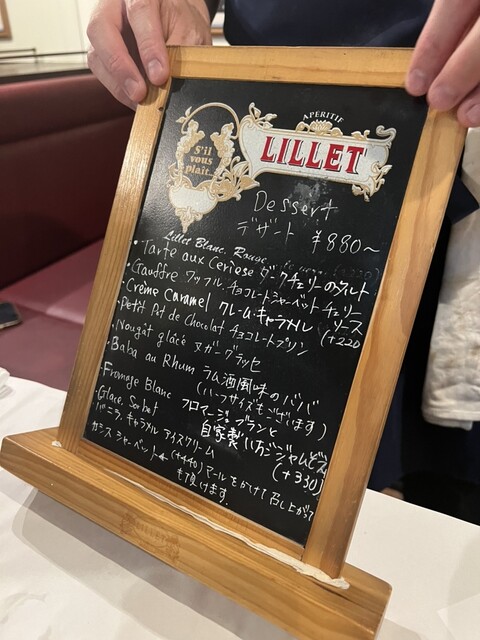 APERITIF
S'il
vous
plaît...
LILLET
Dessert
デザート ¥880~
Lillet Blanc. Rouge
・Tarte aux Ceriese ダークチェリーのタルト
・Gauffre ワッフル.チョコレートシャーベットチェリー
ソース
・Crème Caramel クレーム・キャラメル (+220
・Petit Pot de Chocolat チョコレートプリン
・Nougat glacé ヌガーグラッセ
・Baba au Rhum ラム酒風味のババ
(ハーフサイズもございます)
・Fromage Blanc フロマージュ・ブランと
自家製いちごジャムとズ
(+330)
・Glace. Sorbet
バニラ.キャラメル アイスクリーム
カシス シャーベット (+440)マールをかけて召し上がって
も頂けます.